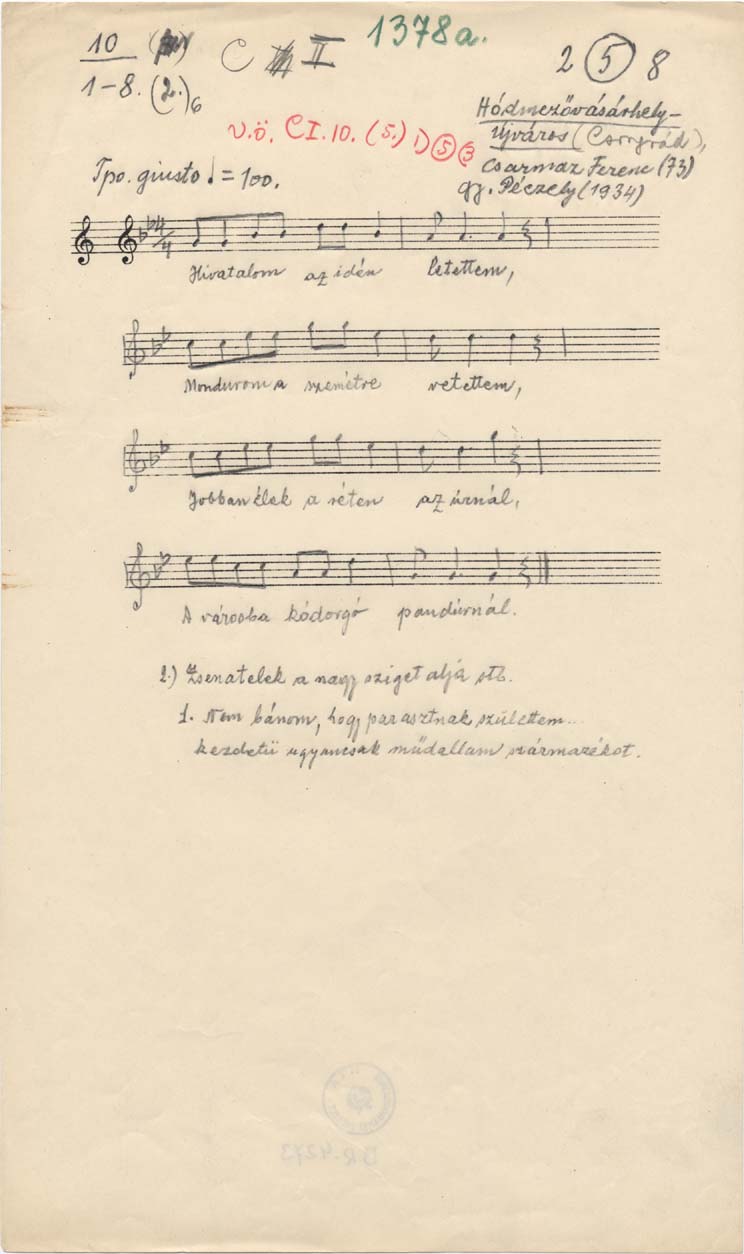 10
1-8. (2.)6
C II
1378a.
2 (5) 8
v.ö. CI. 10. (5.) 1) (5) (3
Hódmezővásárhely-
Újváros (Csongrád),
Csarmaz Ferenc (73)
gy. Péczely (1934)
Tpo. giusto ♩ = 100.
4/4
Hivatalom az idén letettem,
Mondurom a szemétre vetettem,
Jobban élek a réten az úrnál,
A városba kódorgó pandúrnál.
2.) Zsenatelek a nagy sziget alja stb.
1. Nem bánom, hogy parasztnak születtem...
kezdetű ugyancsak műdallam származékot.